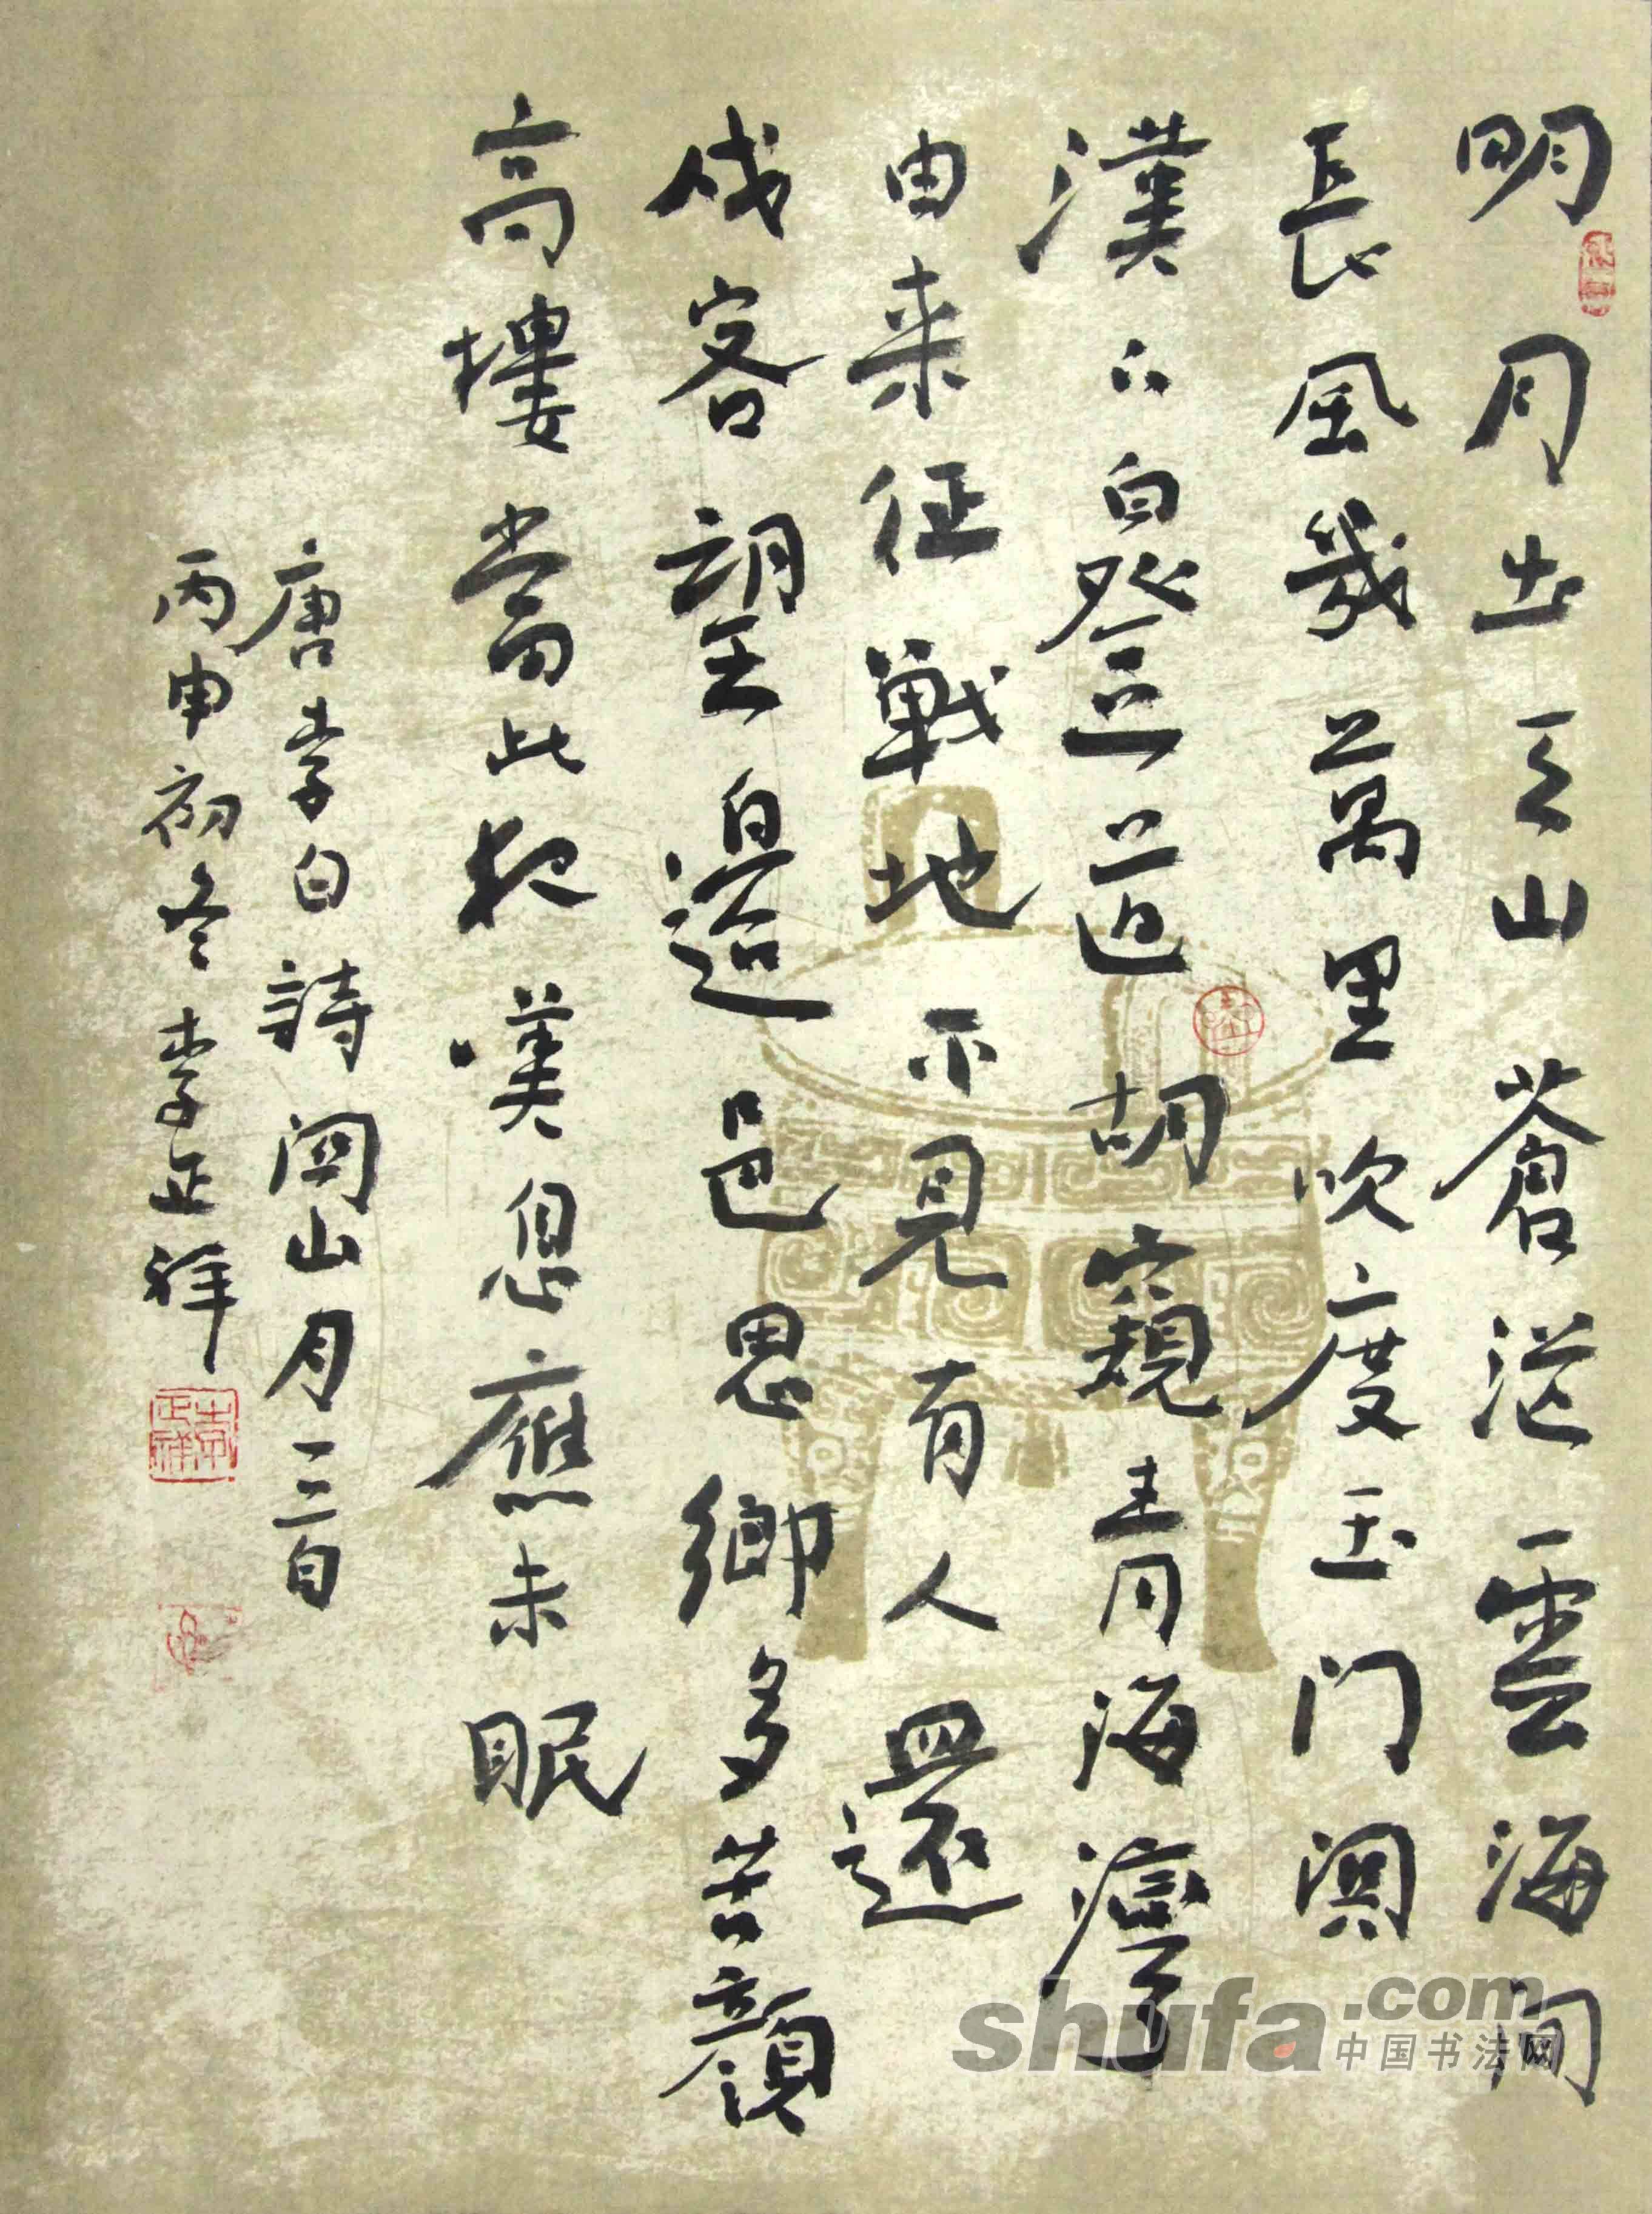 明月出天山蒼茫雲海间
長風幾萬里吹度玉门関
漢下白登道胡窺青海灣
由来征戦地不見有人還
戍客望邊邑思鄉多苦顏
高樓當此夜嘆息應未眠
唐李白詩関山月一首
丙申初冬李正祥
李正祥
shufa.com
中国书法网